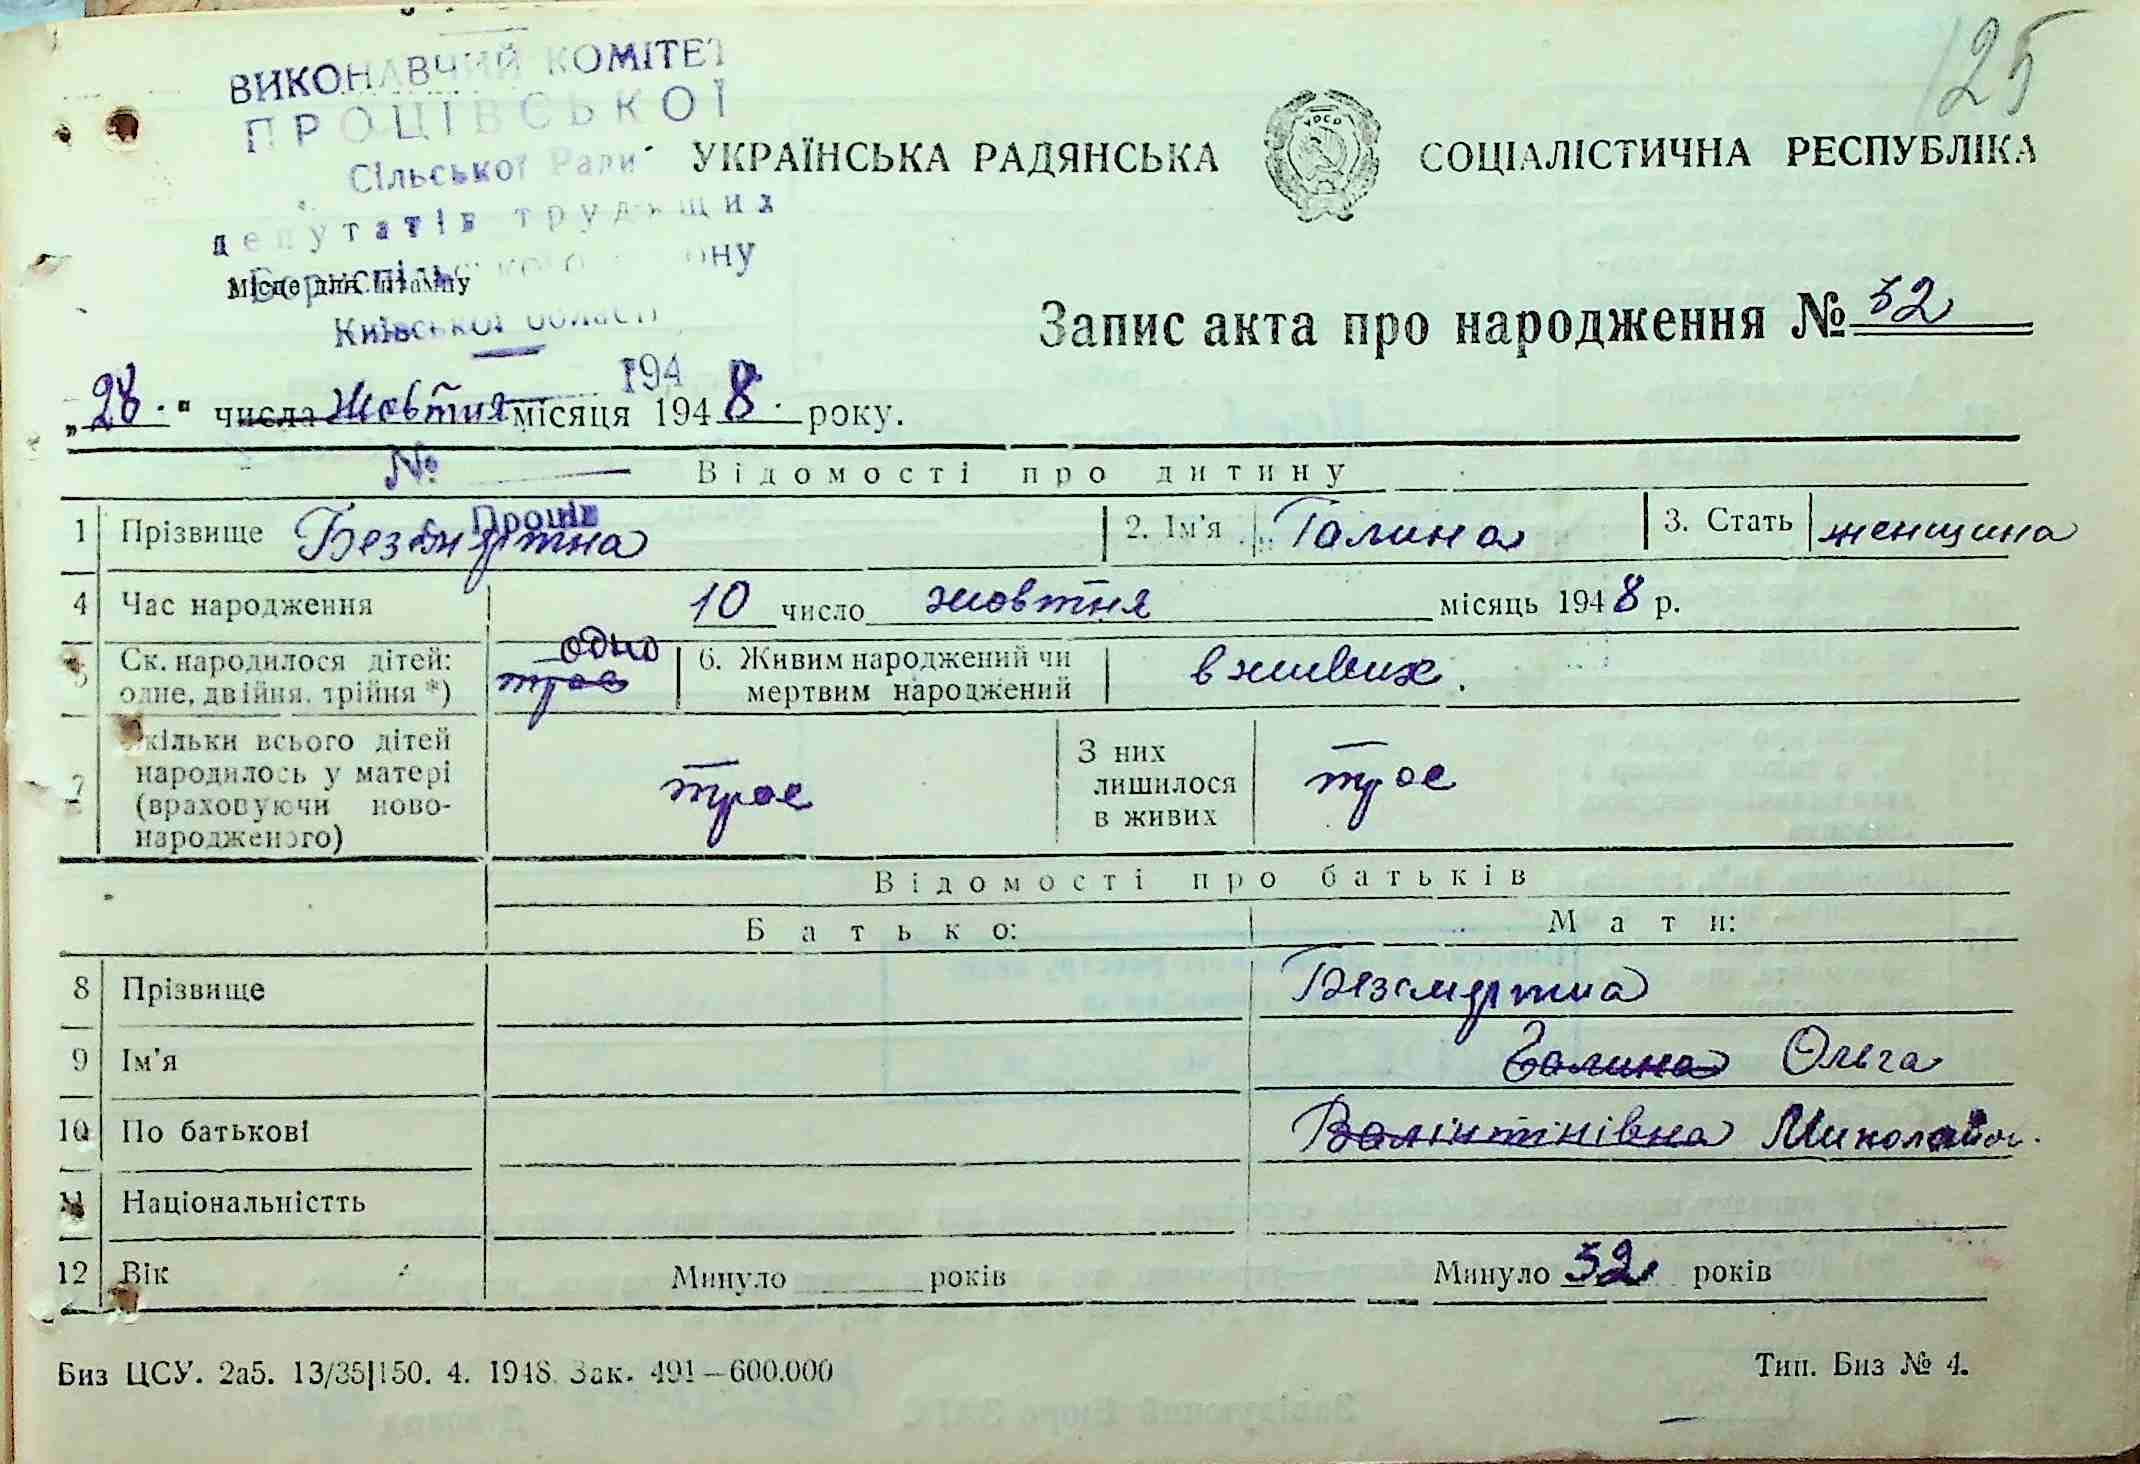 125
ВИКОНАВЧИЙ КОМІТЕТ
ПРОЦІВСЬКОЇ
Сільської Ради
депутатів трудящих
Бориспільського району
Місце для штампу
Київської області
УКРАЇНСЬКА РАДЯНСЬКА СОЦІАЛІСТИЧНА РЕСПУБЛІКА
УРСР
Запис акта про народження № 52
194 р.
„28." числа Жовтня місяця 1948. року.
№
Відомості про дитину
Проців
1 Прізвище Безсмертна 2. Ім'я Галина 3. Стать женщина
4 Час народження 10 число жовтня місяць 1948 р.
5 Ск. народилося дітей: одне, двійня, трійня *) троє одно 6. Живим народжений чи мертвим народжений в живих.
7 Скільки всього дітей народилось у матері (враховуючи новонародженого) троє З них лишилося в живих троє
Відомості про батьків
Батько: Мати:
8 Прізвище Безсмертна
9 Ім'я Галина Ольга
10 По батькові Валінтінівна Миколаївн.
11 Національністть
12 Вік Минуло року років Минуло 32 років
Биз ЦСУ. 2а5. 13/35|150. 4. 1948 Зак. 491—600.000
Тип. Биз № 4.